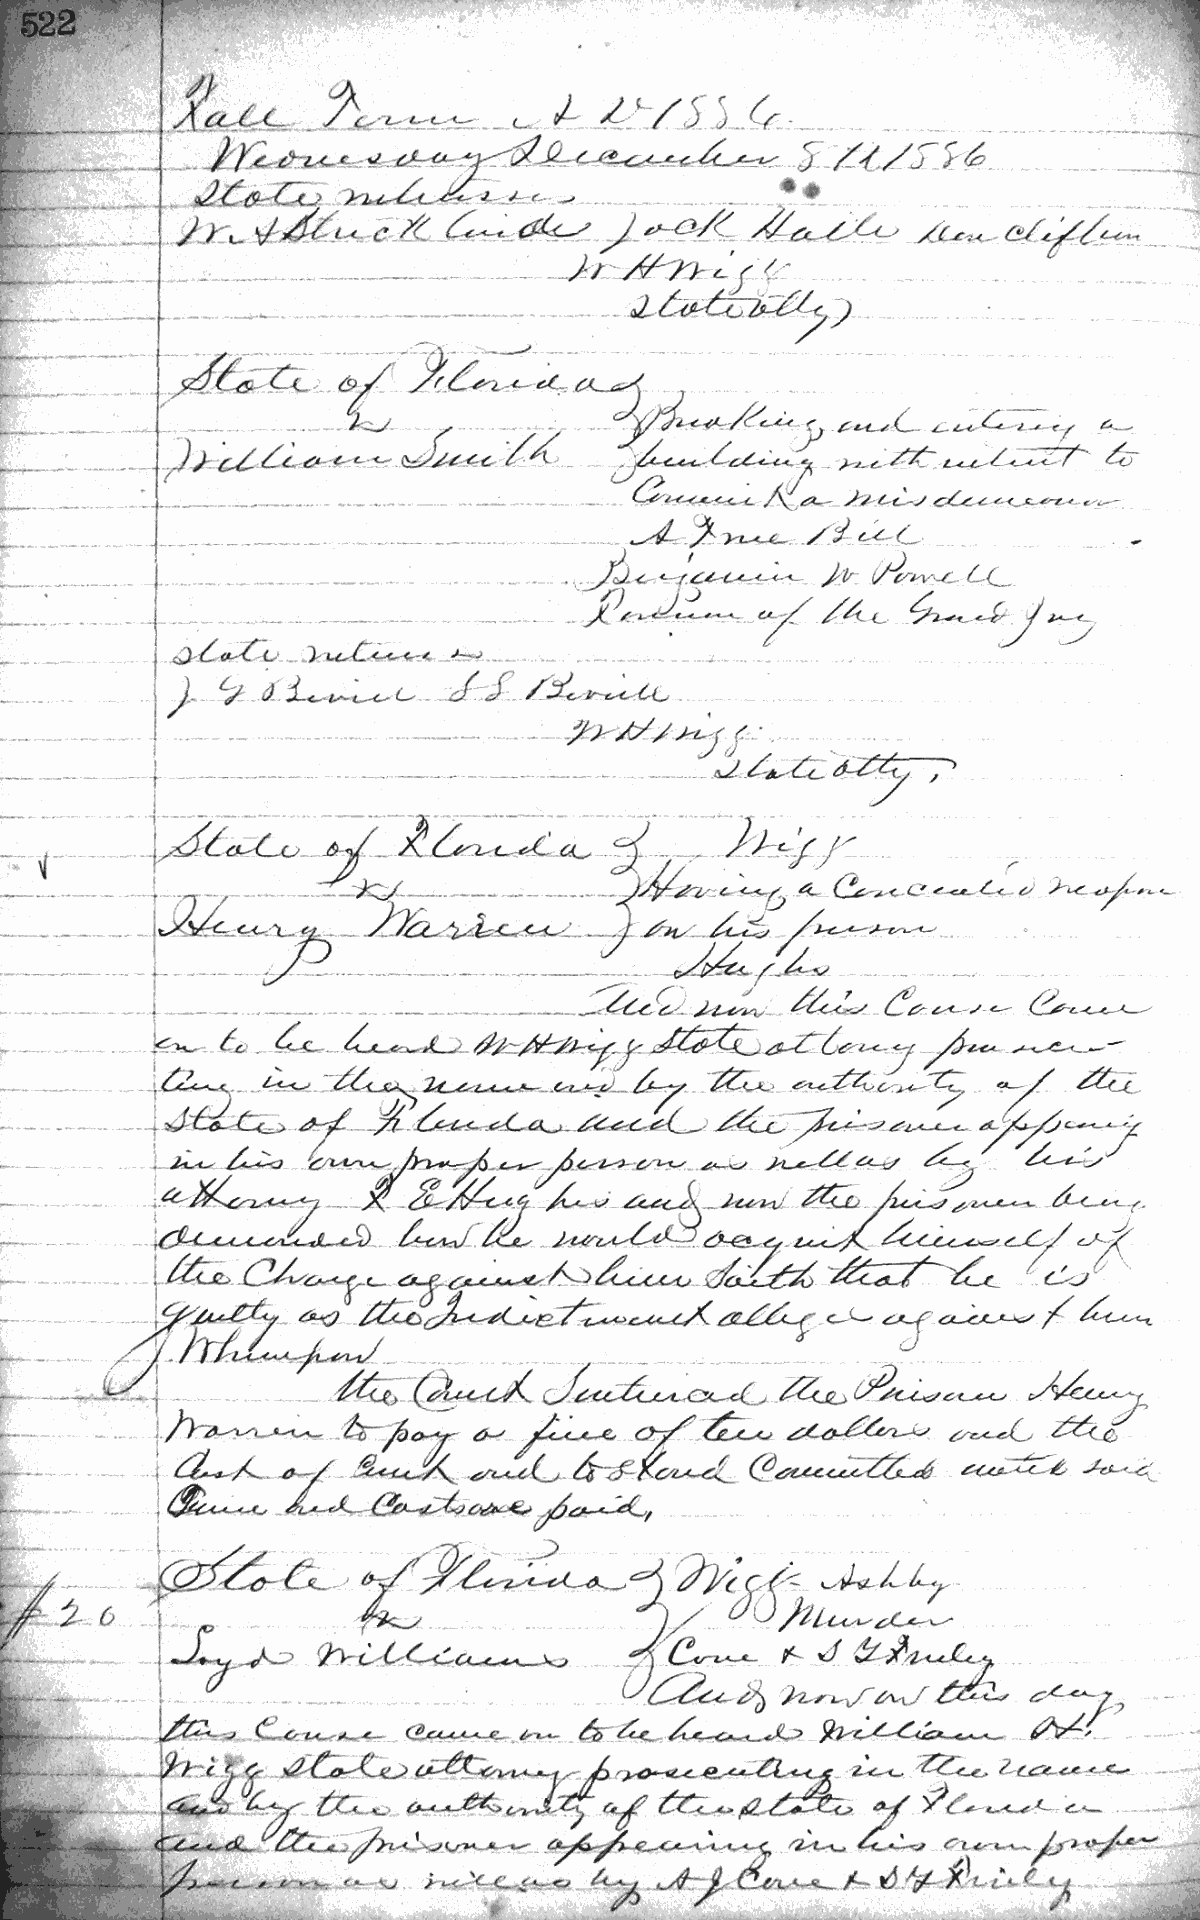 522
Fall Term A D 1886
Wednesday December 8th 1886
State witnesses
W. A Strickland Jack Halle Ben Clifton
W H Wigg
State atty
State of Florida
vs Breaking and entering a
William Smith building with intent to
Commit a misdemeanor
A True Bill
Benjamin W Powell
Foreman of the Grand Jury
State witness
J G Bevill S S Bevill
W H Wigg
State Atty.
State of Florida Wigg
vs Having a Concealed weapon
Henry Warren on his person
Hughs
And now this Cause Came
on to be heard W H Wigg State attorney prosecu-
ting in the name and by the authority of the
State of Florida and the prisoner appearing
in his own proper person as well as by his
attorney F E Hughs and now the prisoner being
demanded how he would acquit himself of
the Charge against him Saith that he is
guilty as the Indictment alleges against him
Whereupon
the Court Sentenced the Prisoner Henry
Warren to pay a fine of ten dollars and the
Cost of Court and to Stand Committed until said
fine and Costs are paid,
State of Florida Wigg Ashby
#20 vs Murder
Loyd Williams Cone & S Y Finley
And now on this day
this Cause came on to be heard William H.
Wigg State attorney prosecuting in the name
and by the authority of the State of Florida
and the prisoner appearing in his own proper
person as well as by A J Cone & S Y Finley